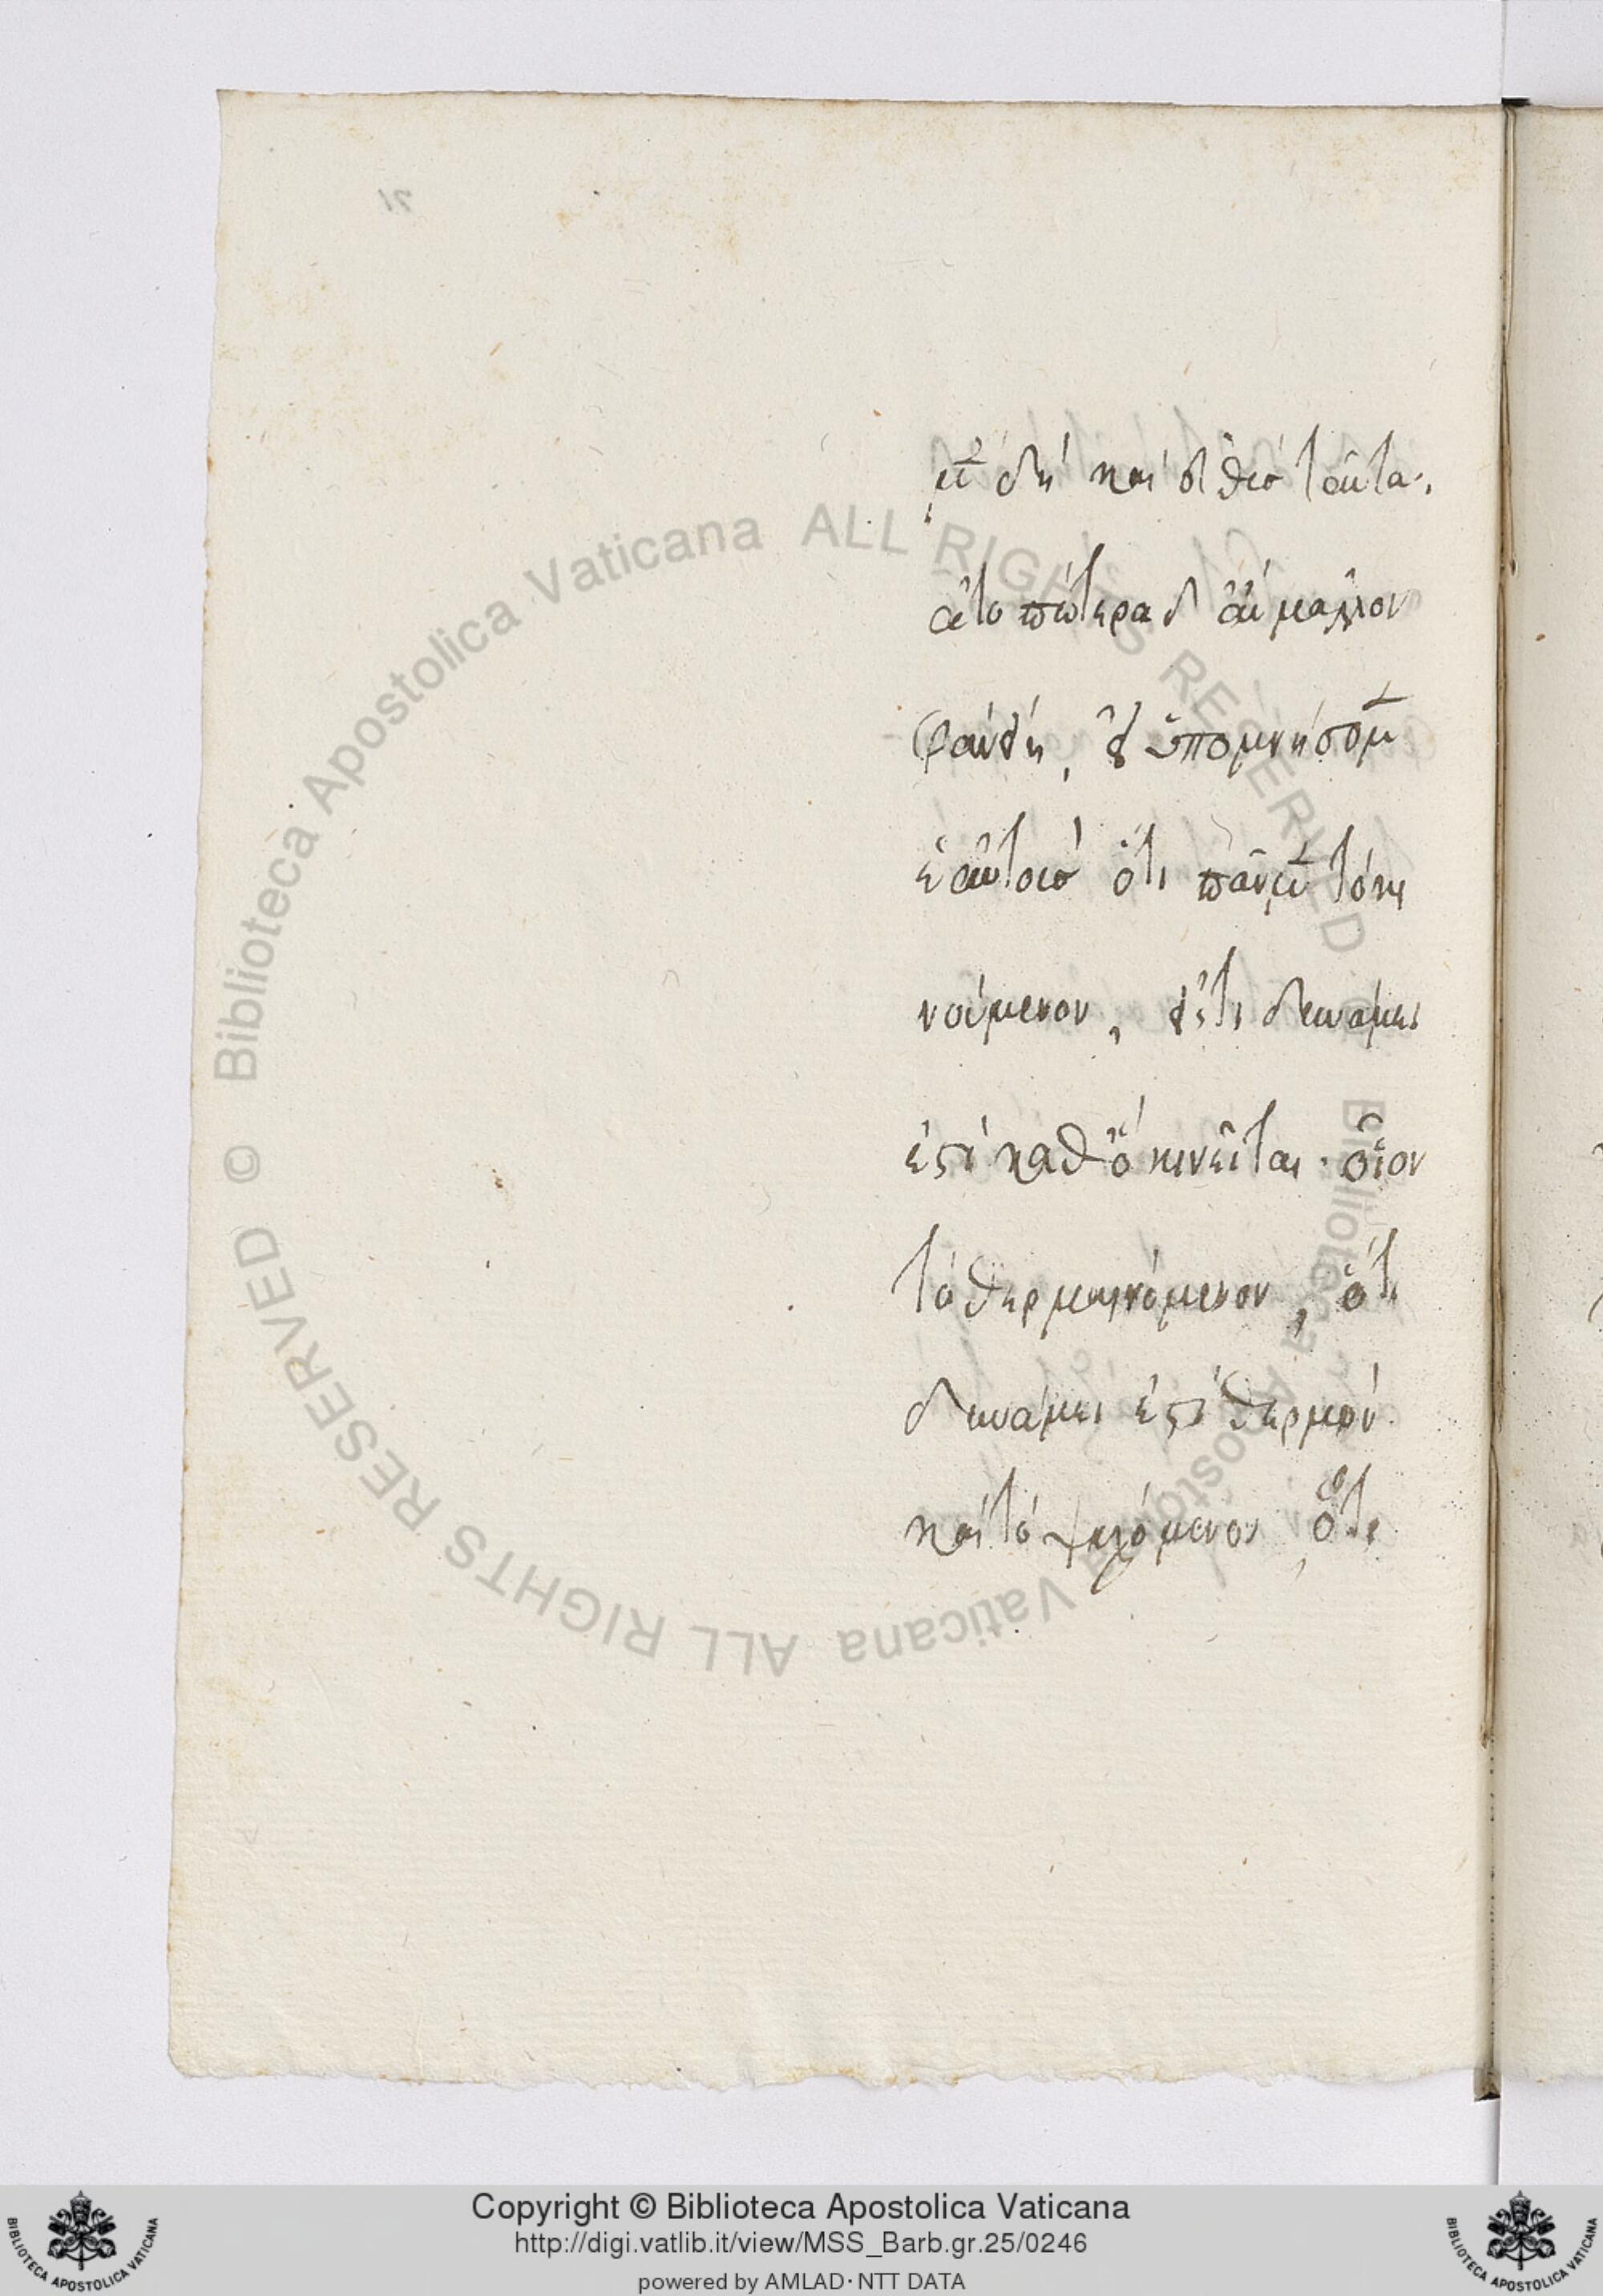 μ̅ δὴ καὶ διθισ ταῦτα·
ἆτο πότερα δ' ἂν μᾶλλον
φανείη, εἰ ὑπομνήσομ̅
ἑαυτοὺσ ὅτι πᾶν μ̅ τὸ κι
νούμενον, ἔτι δυνάμει
ἐστὶ καθ' ὃ κινεῖται· οἷον
τὸ θερμαινόμενον, ὅτι
δυνάμει ἐστὶ θερμόν.
καὶ τὸ ψυχόμενον ὅτι
Biblioteca Apostolica Vaticana ALL RIGHTS RESERVED ©
Biblioteca Apostolica Vaticana ALL RIGHTS RESERVED ©
Copyright © Biblioteca Apostolica Vaticana
http://digi.vatlib.it/view/MSS_Barb.gr.25/0246
powered by AMLAD·NTT DATA
BIBLIOTECA APOSTOLICA VATICANA
BIBLIOTECA APOSTOLICA VATICANA